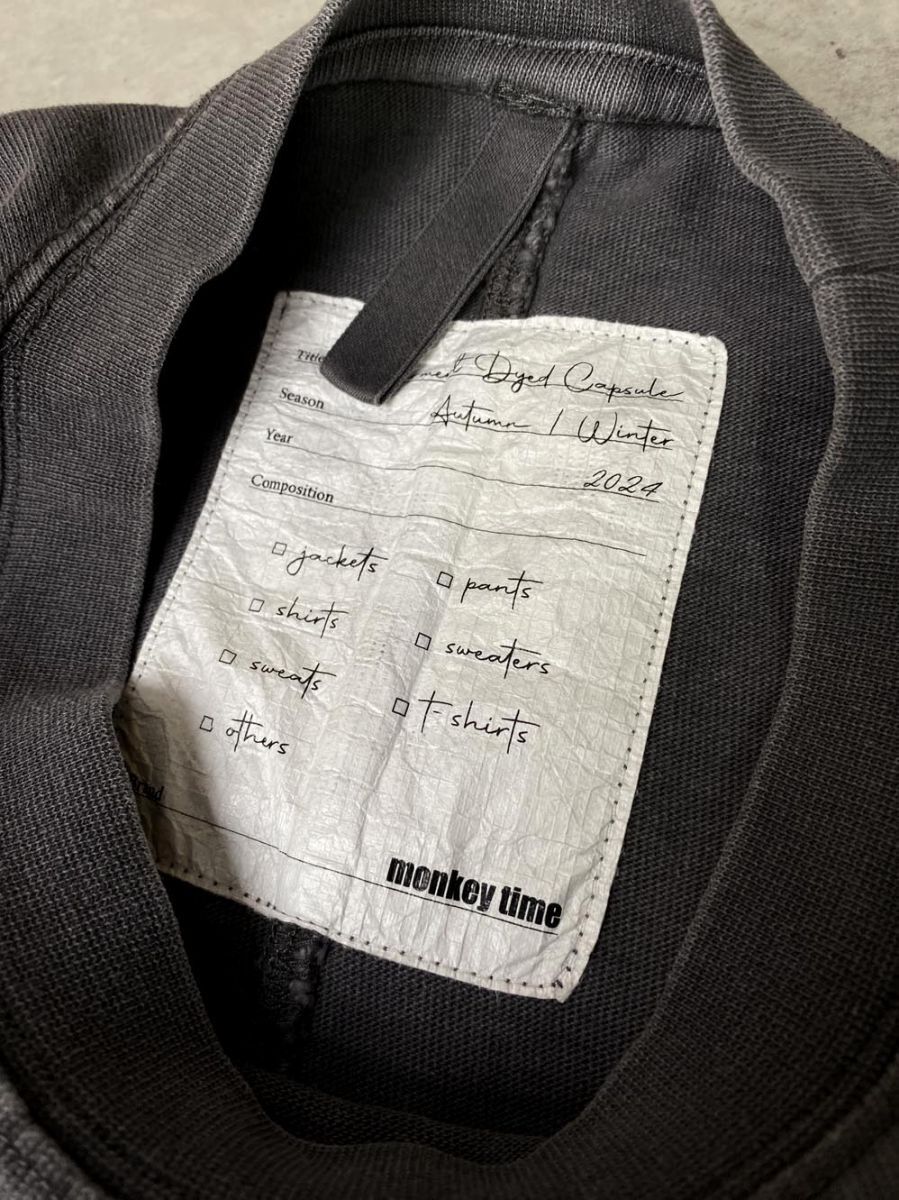 Title Dyed Capsule
Season Autumn / Winter
Year 2024
Composition
□ jackets □ pants
□ shirts □ sweaters
□ sweats □ t-shirts
□ others
monkey time